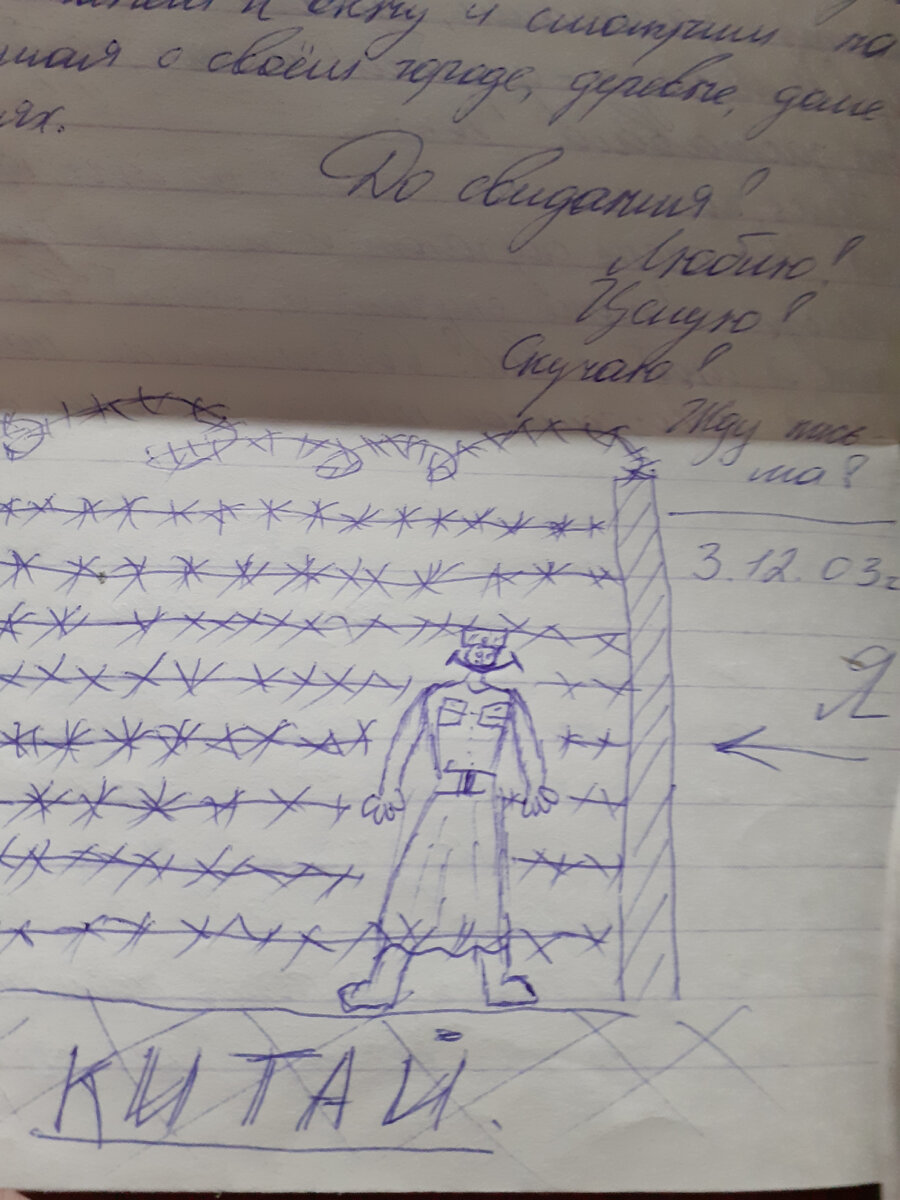 к окну и смотрим на
о своём городе, деревне, доме
ях.
До свидания!
Люблю!
Целую!
Скучаю!
Жду пись
ма!
3.12.03г
Я
КИТАЙ.